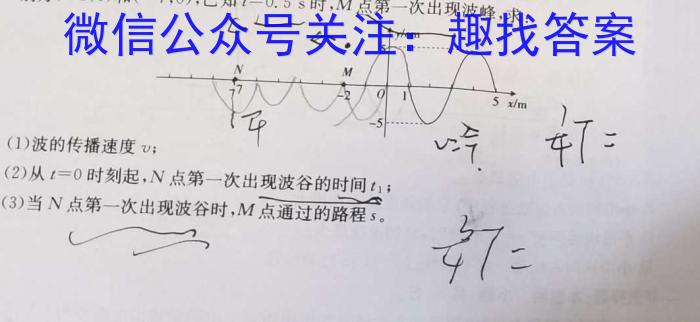 已知t=0.5 s时,M点第一次出现波峰,求:
微信公众号关注：趣找答案
y/cm
5
N
M
-7
-2
O
1
5
x/m
-5
(1)波的传播速度v;
(2)从t=0时刻起,N点第一次出现波谷的时间t₁;
(3)当N点第一次出现波谷时,M点通过的路程s。